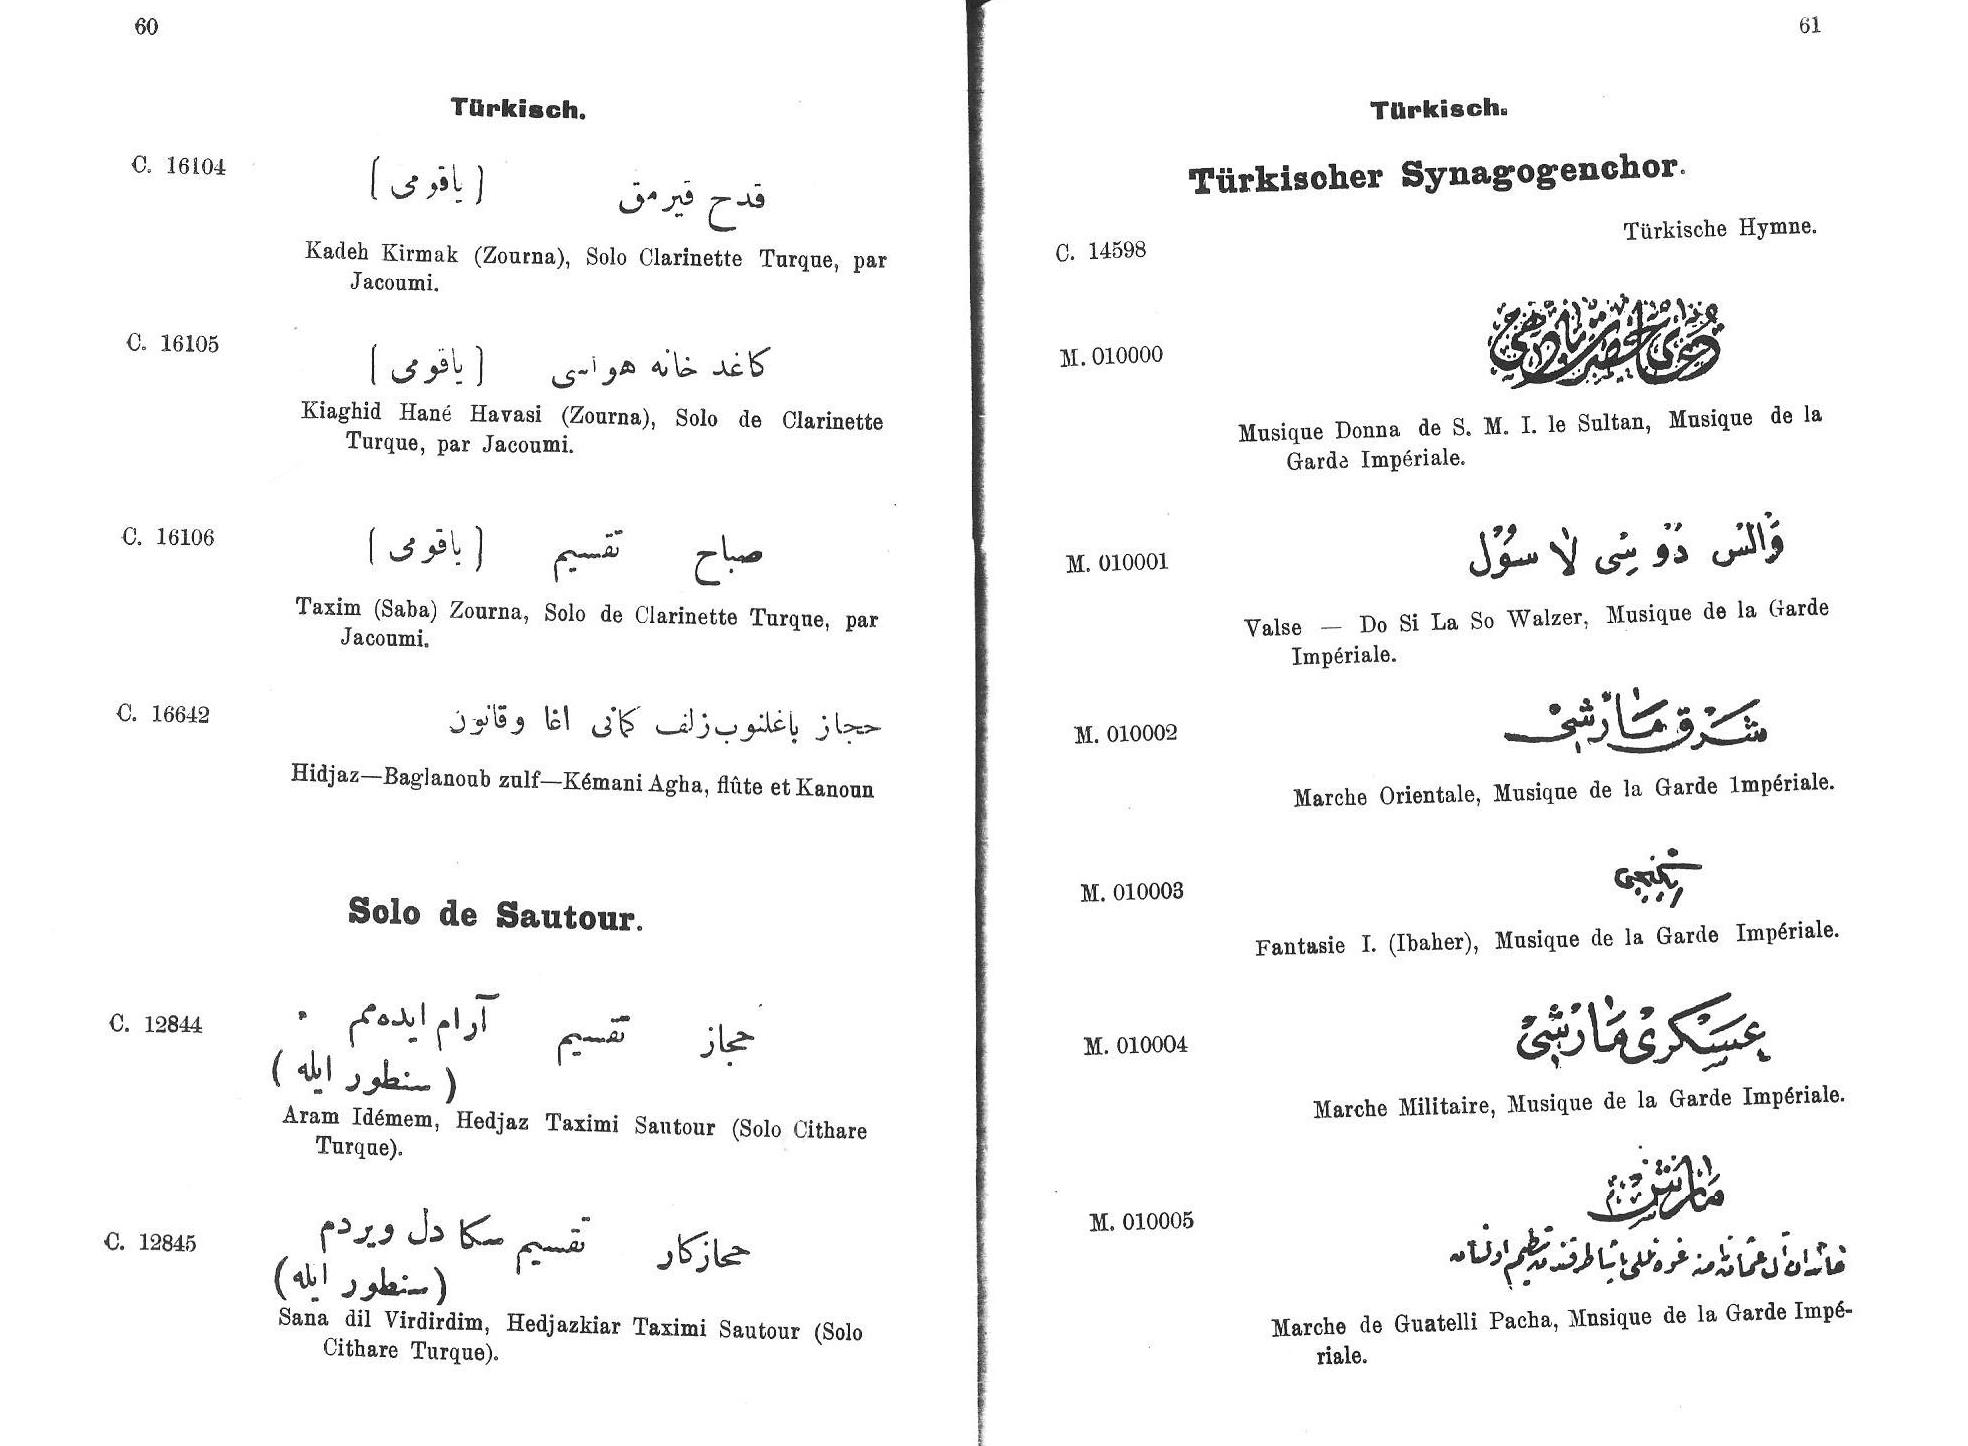 60
Türkisch.
C. 16104
قدح قيرمق [ياقومى]
Kadeh Kirmak (Zourna), Solo Clarinette Turque, par
Jacoumi.
C. 16105
كاغد خانه هواسى [ياقومى]
Kiaghid Hané Havasi (Zourna), Solo de Clarinette
Turque, par Jacoumi.
C. 16106
صباح تقسيم [ياقومى]
Taxim (Saba) Zourna, Solo de Clarinette Turque, par
Jacoumi.
C. 16642
حجاز باغلنوب زلف كمانى اغا وقانون
Hidjaz—Baglanoub zulf—Kémani Agha, flûte et Kanoun
Solo de Sautour.
C. 12844
حجاز تقسيم آرام ايده‌مم
(سنطور ايله)
Aram Idémem, Hedjaz Taximi Sautour (Solo Cithare
Turque).
C. 12845
حجازكار تقسيم سكا دل ويردم
(سنطور ايله)
Sana dil Virdirdim, Hedjazkiar Taximi Sautour (Solo
Cithare Turque).
61
Türkisch.
Türkischer Synagogenchor.
Türkische Hymne.
C. 14598
M. 010000
Musique Donna de S. M. I. le Sultan, Musique de la
Garde Impériale.
M. 010001
والس دو سى لا سول
Valse — Do Si La So Walzer, Musique de la Garde
Impériale.
M. 010002
شرق مارشى
Marche Orientale, Musique de la Garde Impériale.
M. 010003
Fantasie I. (Ibaher), Musique de la Garde Impériale.
M. 010004
عسكرى مارشى
Marche Militaire, Musique de la Garde Impériale.
M. 010005
مارش
Marche de Guatelli Pacha, Musique de la Garde Impé-
riale.